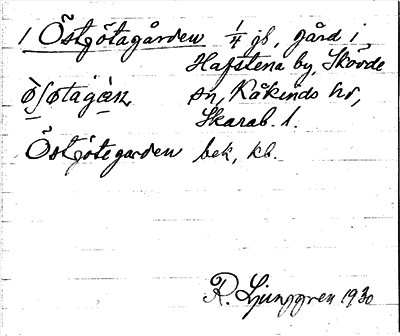 1 Östgötagården 1/4 gb, gård i
Hafstena by, Skövde
sn, Kåkinds hd,
Skarab. l.
Östgötegarden bek, kb.
R. Ljunggren 1930